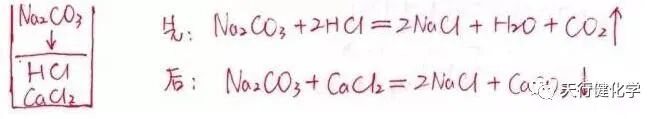 Na₂CO₃
↓
HCl
CaCl₂
先: Na₂CO₃+2HCl=2NaCl+H₂O+CO₂↑
后: Na₂CO₃+CaCl₂=2NaCl+ ↓
天行健化学